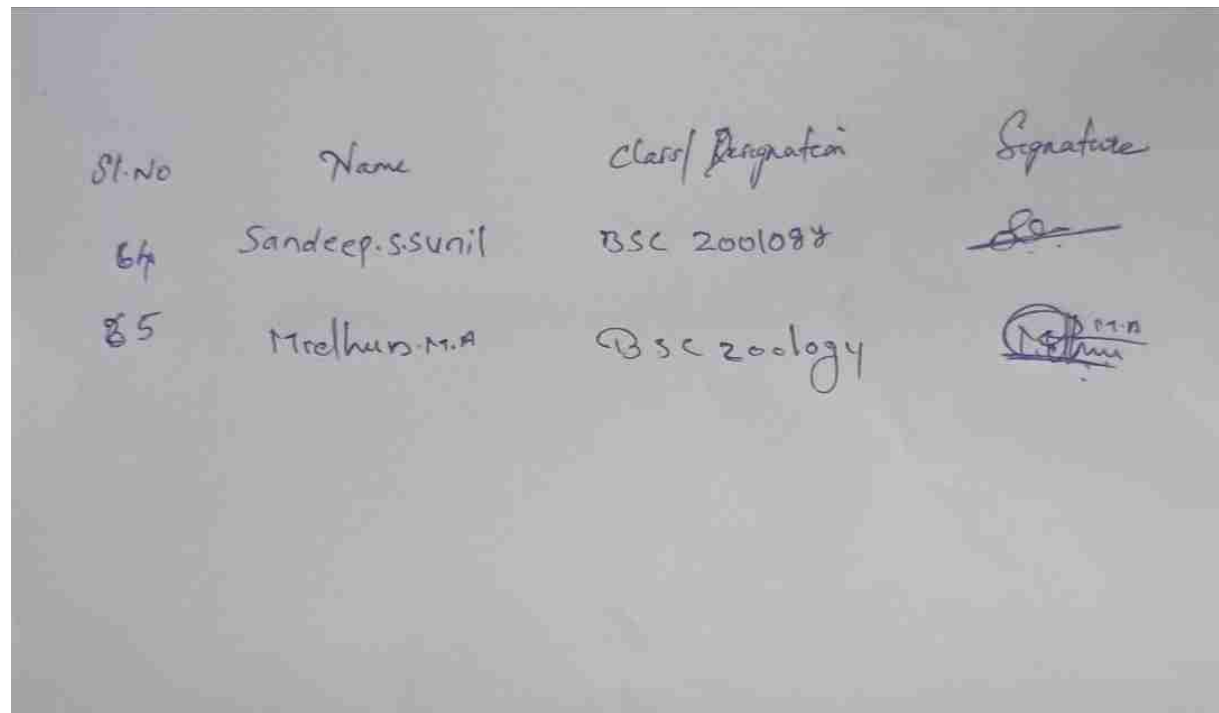 Sl.No Name Class/ Designation Signature
64 Sandeep.S.Sunil BSC Zoology
65 M.A BSC Zoology M.A